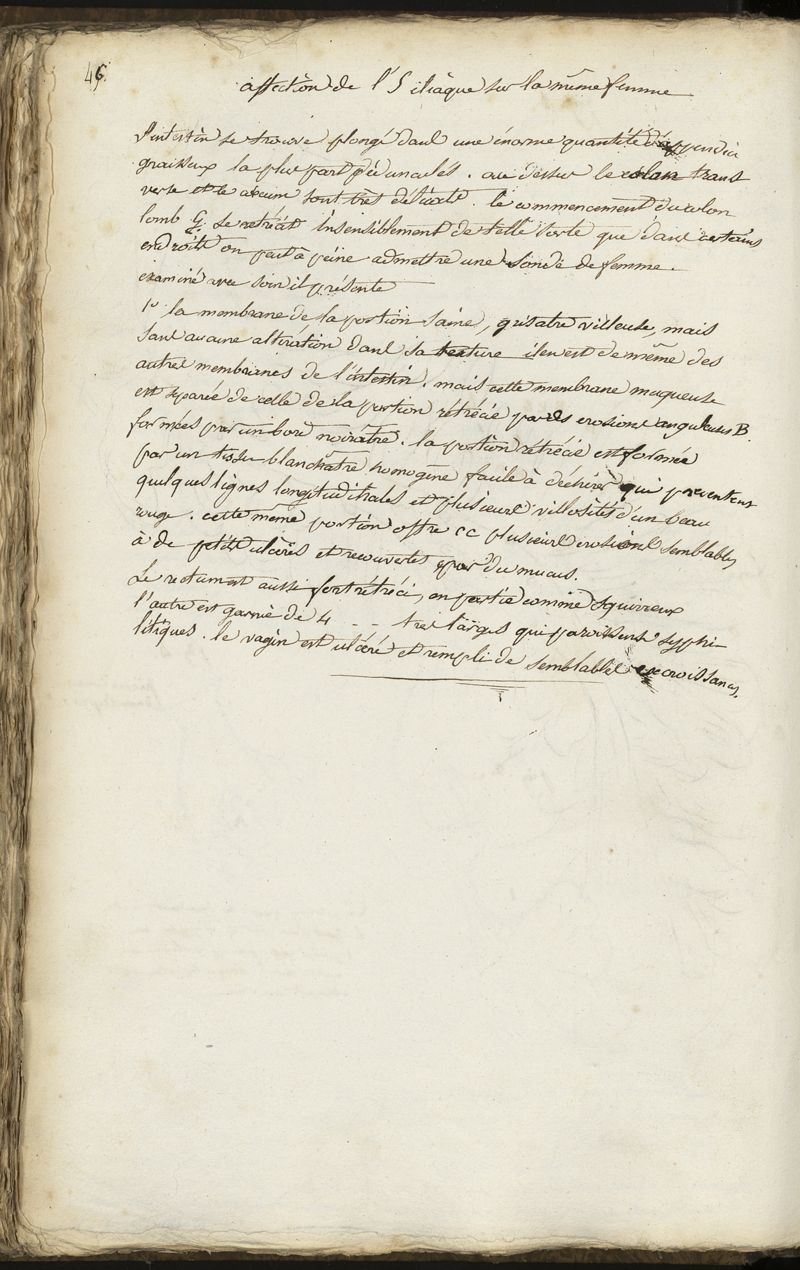 46.
affection de l'S iliaque sur la même femme
l'intestin se trouve plongé dans une énorme quantité d'appendic
graisseux la plus part pédunculés. au dessus le colon trans
verse et le cœcum sont très dilatés. le commencement du colon
lomb G. se retrécit insensiblement de telle sorte que dans certains
endroits on peut à peine admettre une sonde de femme.
examiné avec soin il présente
1° la membrane de la portion saine, grisatre villeuse, mais
sans aucune altération dans sa texture il en est de même des
autres membranes de l'intestin. mais cette membrane muqueuse
est séparée de celle de la portion rétrécie par des erosions anguleuses B.
formées par un bord noirâtre. la portion rétrécie est formée
par un tissu blanchâtre homogène facile à déchirer qui présentent
quelques lignes longitudinales et plusieurs villosités d'un beau
rouge. cette même portion offre cc plusieurs erosions semblables
à de petits ulcères et recouvertes par du mucus.
Le rectum est aussi fort rétréci, en partie comme squirreux
l'autre est garnie de 4 - - très larges qui paroissent syphi-
litiques. le vagin est ulceré et rempli de semblables excroissances.